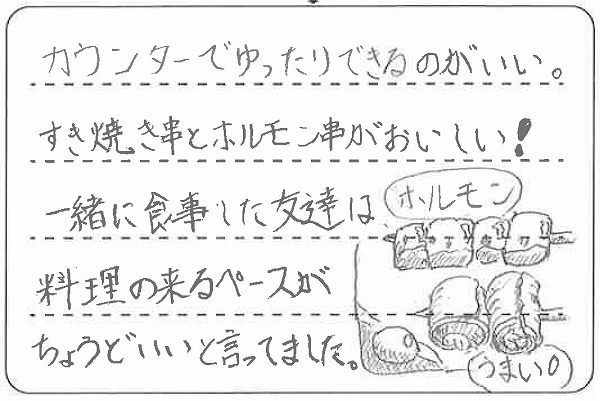 カウンターでゆったりできるのがいい。
すき焼き串とホルモン串がおいしい!
一緒に食事した友達は
料理の来るペースが
ちょうどいいと言ってました。
ホルモン
うまい0